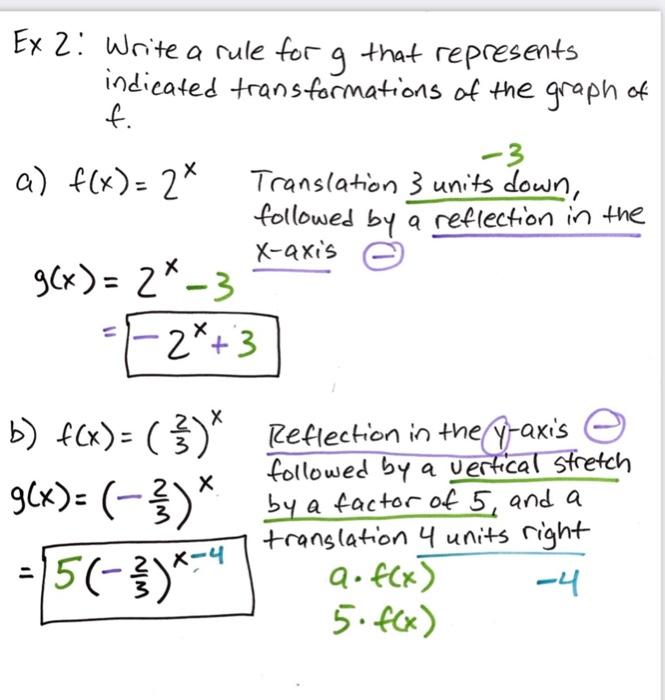 Ex 2: Write a rule for g that represents
indicated transformations of the graph of
f.
-3
a) f(x) = 2^x Translation 3 units down,
followed by a reflection in the
x-axis ⊖
g(x) = 2^x - 3
= -2^x + 3
b) f(x) = (2/3)^x Reflection in the y-axis ⊖
g(x) = (-2/3)^x followed by a vertical stretch
by a factor of 5, and a
translation 4 units right
= 5(-2/3)^x-4 a · f(x) -4
5 · f(x)